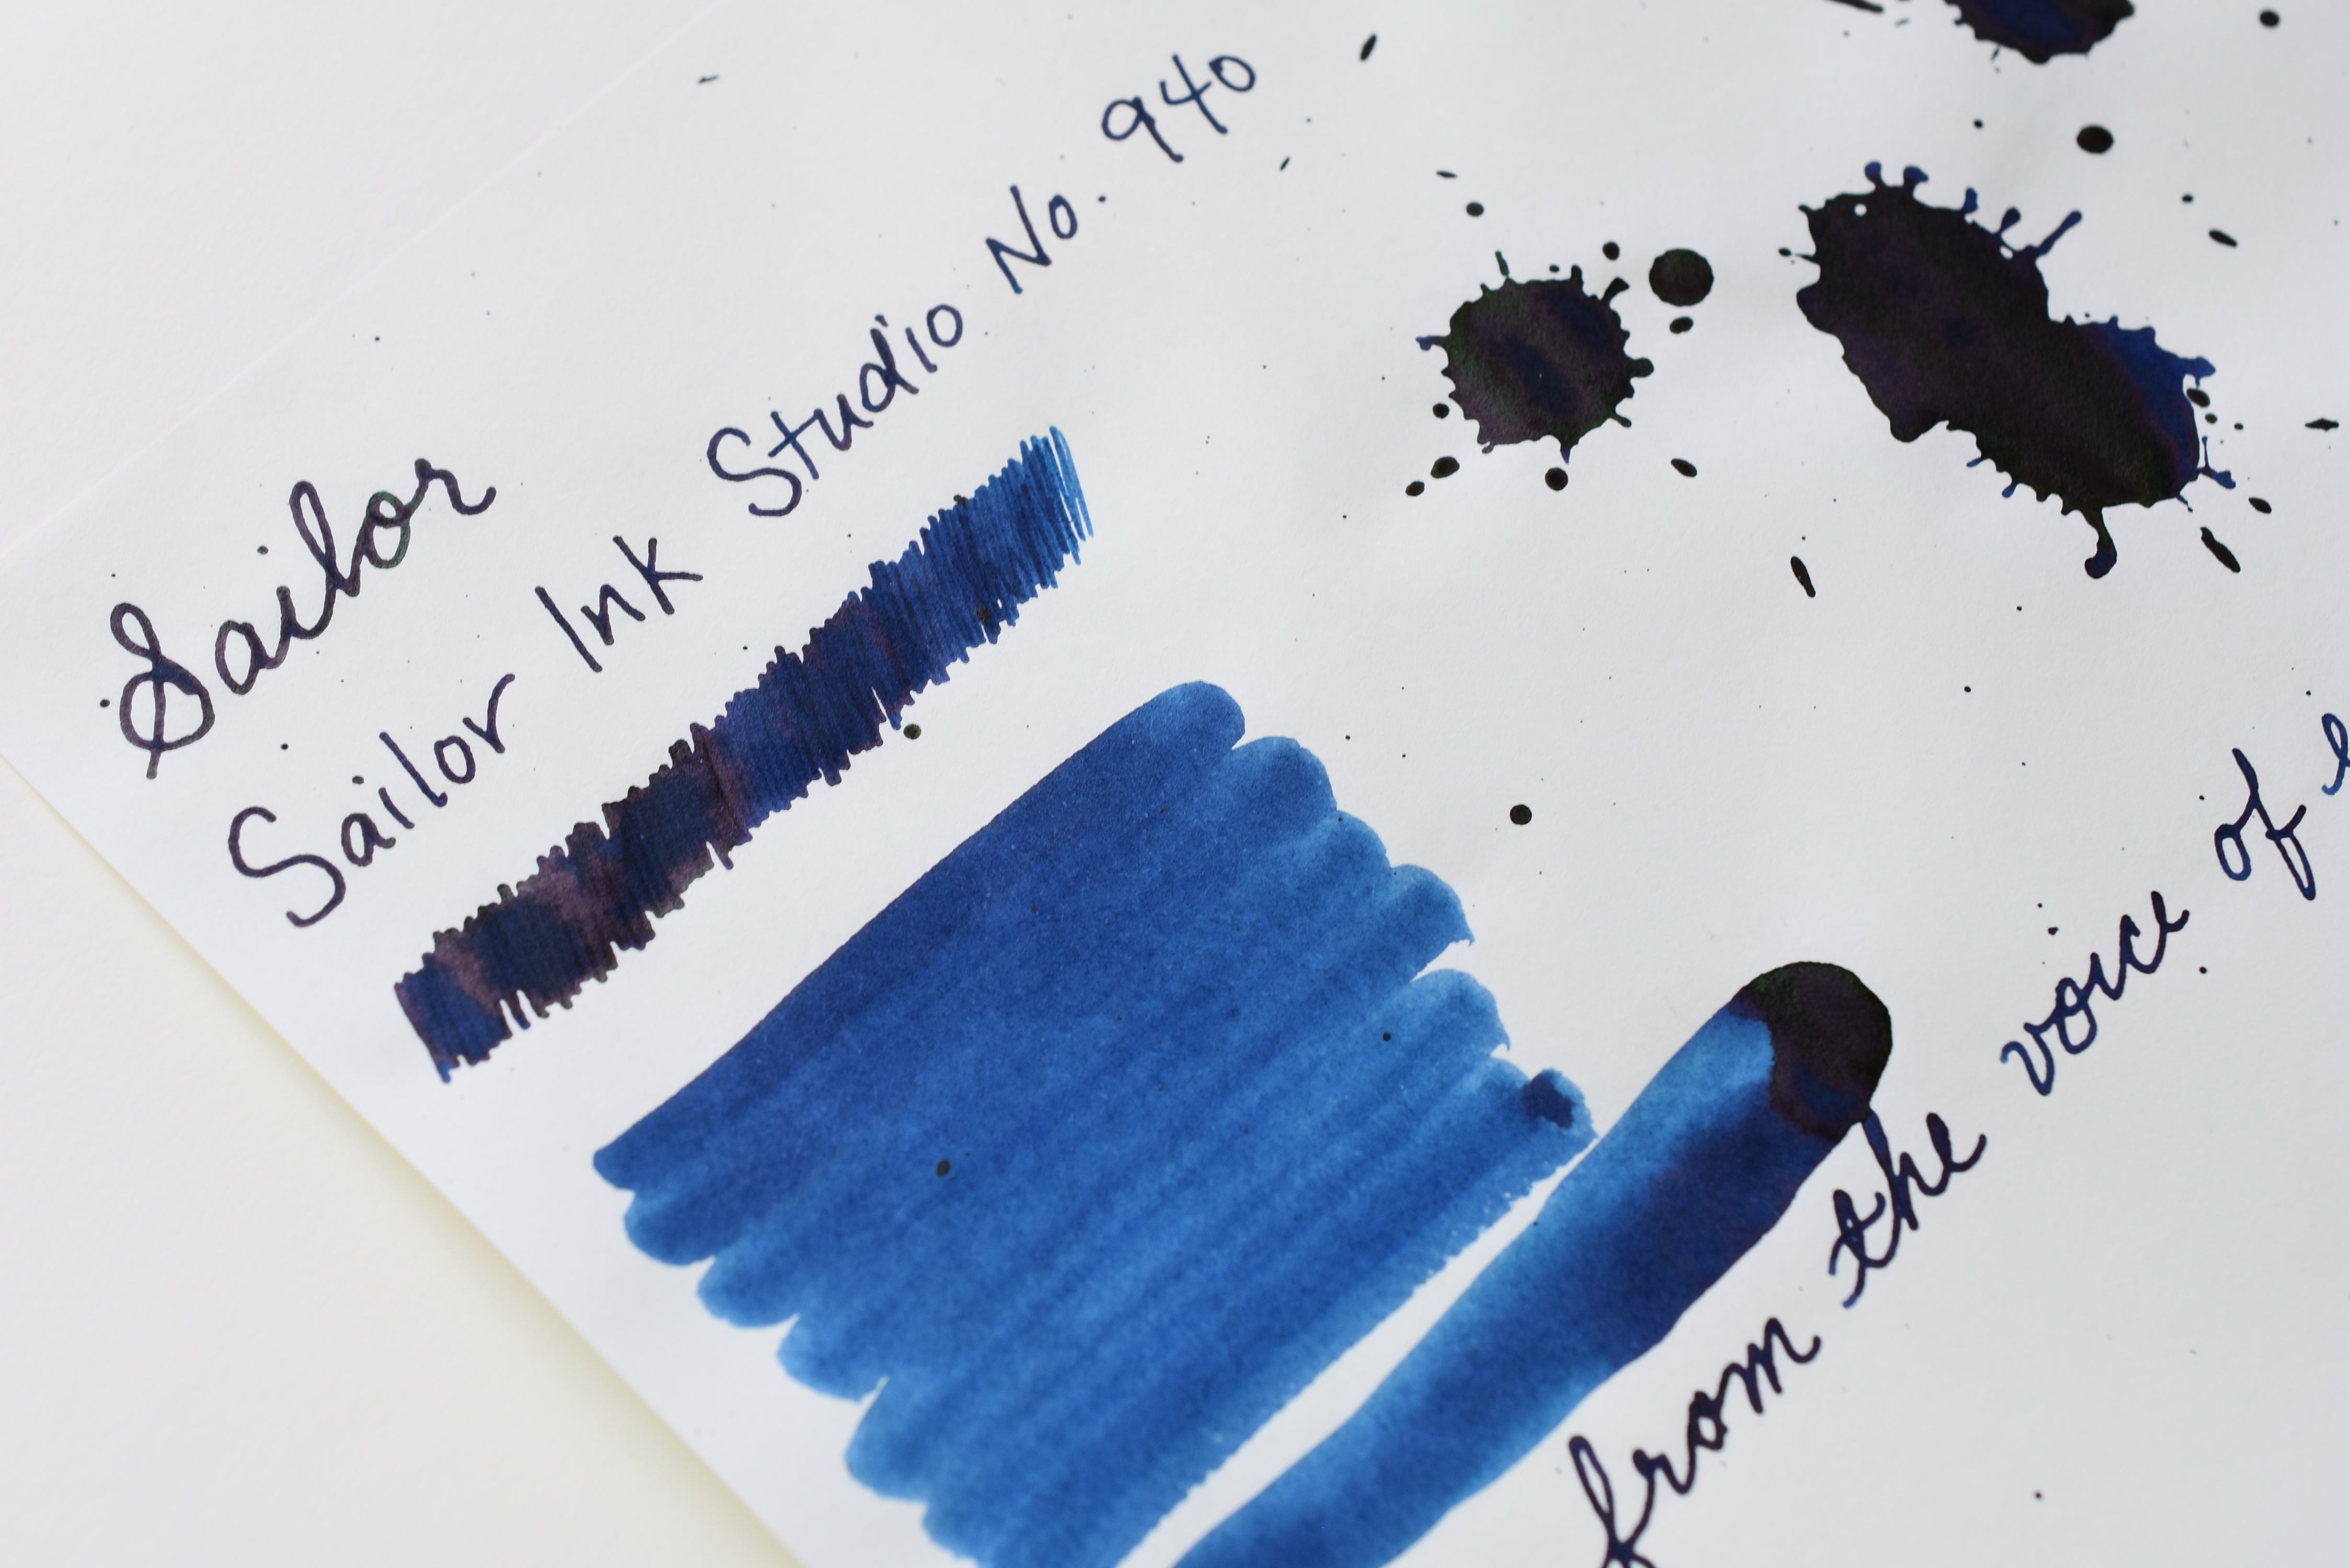 Sailor
Sailor Ink Studio No. 940
from the voice of